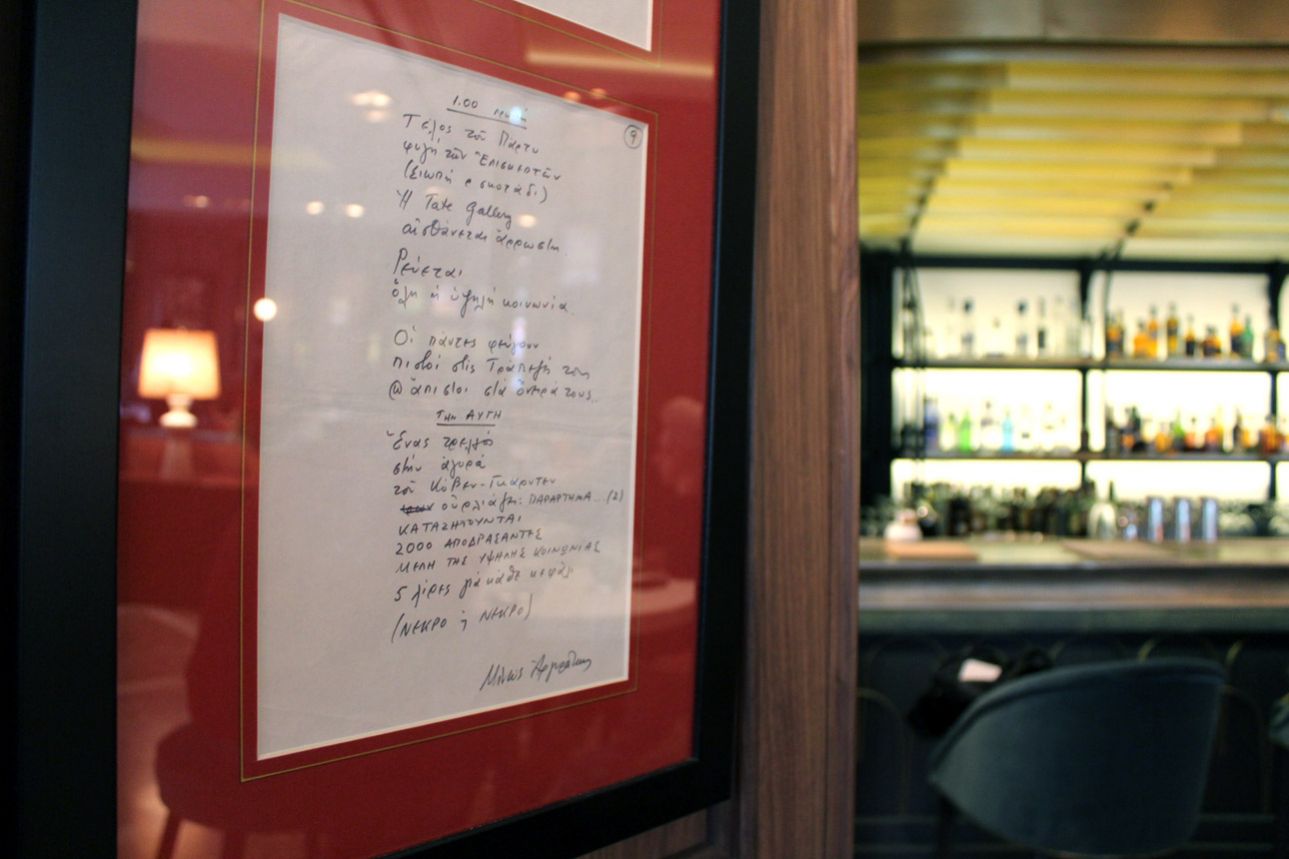 1.00 πρωΐ
9
Τέλος τοῦ Πάρτυ
φυγή τῶν Ἐπισκεπτῶν
(σιωπή & σκοτάδι)
Ἡ Tate Gallery
αἰσθάνεται ἄρρωστη.
Ρεύεται
ὅλη ἡ ὑψηλή κοινωνία.
Οἱ πάντες φεύγουν
πιστοί στίς Τράπεζές τους
ἄπιστοι στά ὄνειρά τους.
ΤΗΝ ΑΥΓΗ
Ἕνας τρελλός
στήν ἀγορά
τοῦ Κόβεν-Γκάρντεν
οὐρλιάζει: ΠΑΡΑΡΤΗΜΑ... (2)
ΚΑΤΑΖΗΤΟΥΝΤΑΙ
2000 ΑΠΟΔΡΑΣΑΝΤΕΣ
ΜΕΛΗ ΤΗΣ ΥΨΗΛΗΣ ΚΟΙΝΩΝΙΑΣ
5 λίρες γιά κάθε κεφάλι
(ΝΕΚΡΟ ἤ ΝΕΚΡΟ)